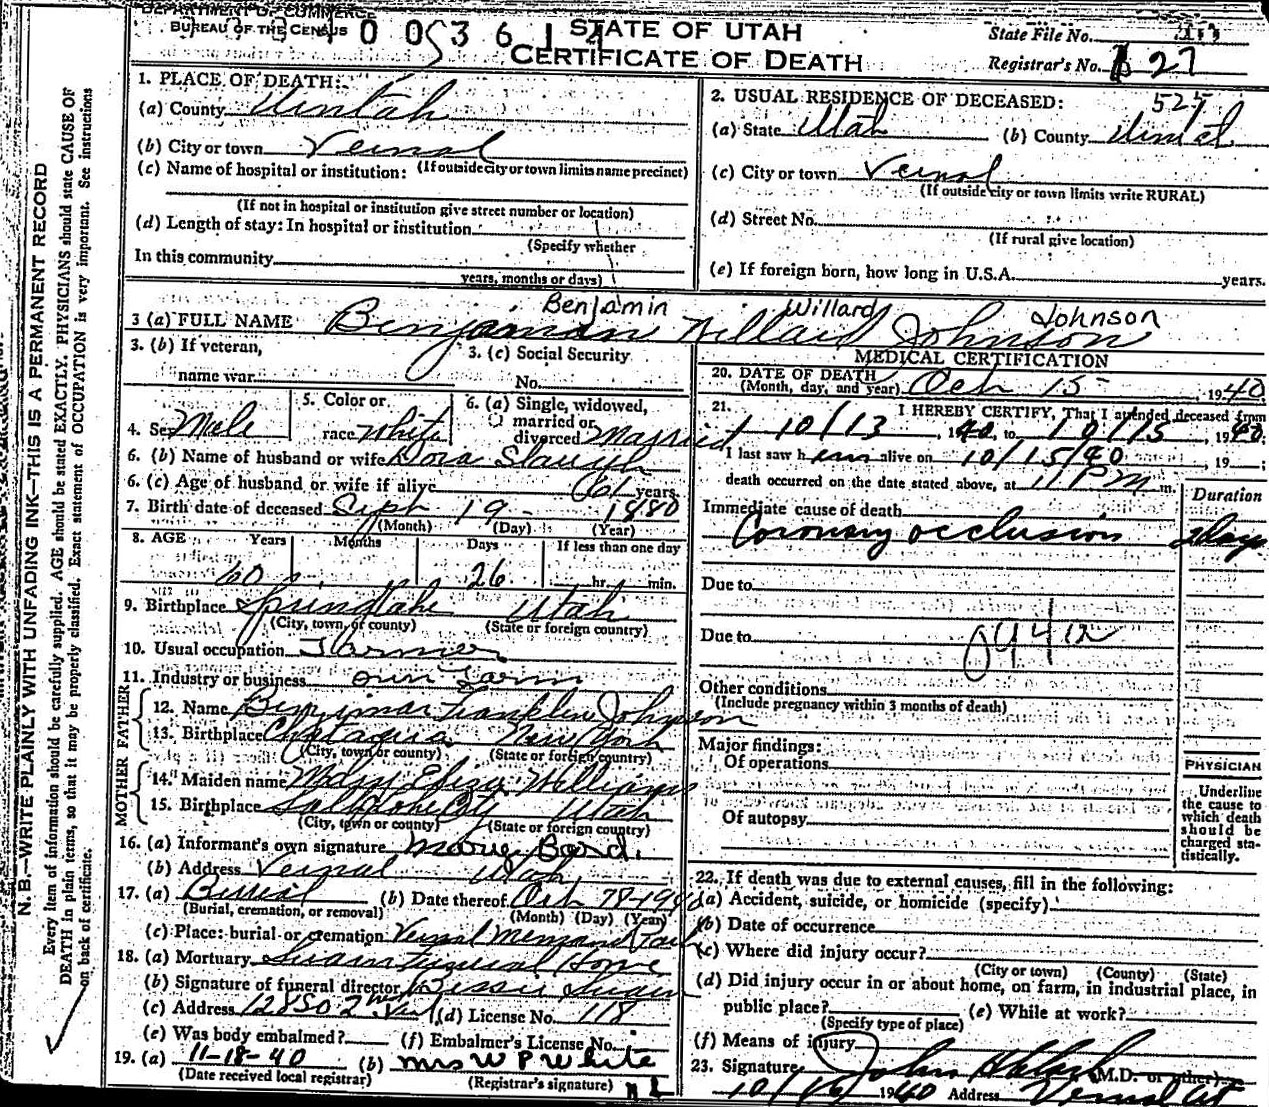 DEPARTMENT OF COMMERCE
BUREAU OF THE CENSUS
STATE OF UTAH
CERTIFICATE OF DEATH
State File No.
Registrar's No. 27
N. B.—WRITE PLAINLY WITH UNFADING INK—THIS IS A PERMANENT RECORD
Every item of information should be carefully supplied. AGE should be stated EXACTLY. PHYSICIANS should state CAUSE OF
DEATH in plain terms, so that it may be properly classified. Exact statement of OCCUPATION is very important. See instructions
on back of certificate.
1. PLACE OF DEATH:
(a) County Uintah
(b) City or town Vernal
(c) Name of hospital or institution: (If outside city or town limits name precinct)
(If not in hospital or institution give street number or location)
(d) Length of stay: In hospital or institution
(Specify whether
In this community
years, months or days)
2. USUAL RESIDENCE OF DECEASED:
(a) State Utah (b) County Uintah
(c) City or town Vernal
(If outside city or town limits write RURAL)
(d) Street No.
(If rural give location)
(e) If foreign born, how long in U.S.A. years.
Benjamin Willard Johnson
3 (a) FULL NAME Benjaman Willard Johnson
3. (b) If veteran,
name war
3. (c) Social Security
No.
4. Sex Male
5. Color or
race White
6. (a) Single, widowed,
married or
divorced Married
6. (b) Name of husband or wife Dora Slaugh
6. (c) Age of husband or wife if alive 61 years
7. Birth date of deceased Sept 19 - 1880
(Month) (Day) (Year)
8. AGE Years Months Days If less than one day
60 26 hr. min.
9. Birthplace Springlake Utah
(City, town, or county) (State or foreign country)
10. Usual occupation Farmer
11. Industry or business own farm
FATHER
12. Name Benjiman Franklin Johnson
13. Birthplace New York
(City, town or county) (State or foreign country)
MOTHER
14. Maiden name Eliza Williams
15. Birthplace Salt Lake City Utah
(City, town or county) (State or foreign country)
16. (a) Informant's own signature
(b) Address Vernal Utah
17. (a) Burial (b) Date thereof Oct
(Burial, cremation, or removal) (Month) (Day) (Year)
(c) Place: burial or cremation Vernal Park
18. (a) Mortuary Swain Funeral Home
(b) Signature of funeral director Bessie Swain
(c) Address (d) License No. 118
(e) Was body embalmed? (f) Embalmer's License No.
19. (a) 11-18-40 (b) Mrs W P White
(Date received local registrar) (Registrar's signature)
MEDICAL CERTIFICATION
20. DATE OF DEATH
(Month, day, and year) Oct 15 - 1940
21. I HEREBY CERTIFY, That I attended deceased from
10/13, 1940, to 10/15, 1940;
I last saw him alive on 10/15/40, 19 ;
death occurred on the date stated above, at 11 PM m.
Duration
Immediate cause of death
Coronary occlusion 2 days
Due to
Due to
Other conditions
(Include pregnancy within 3 months of death)
Major findings:
Of operations
Of autopsy
PHYSICIAN
Underline
the cause to
which death
should be
charged sta-
tistically.
22. If death was due to external causes, fill in the following:
(a) Accident, suicide, or homicide (specify)
(b) Date of occurrence
(c) Where did injury occur?
(City or town) (County) (State)
(d) Did injury occur in or about home, on farm, in industrial place, in
public place? (e) While at work?
(Specify type of place)
(f) Means of injury
23. Signature John (M.D. or other)
10/16 1940 Address Vernal Ut